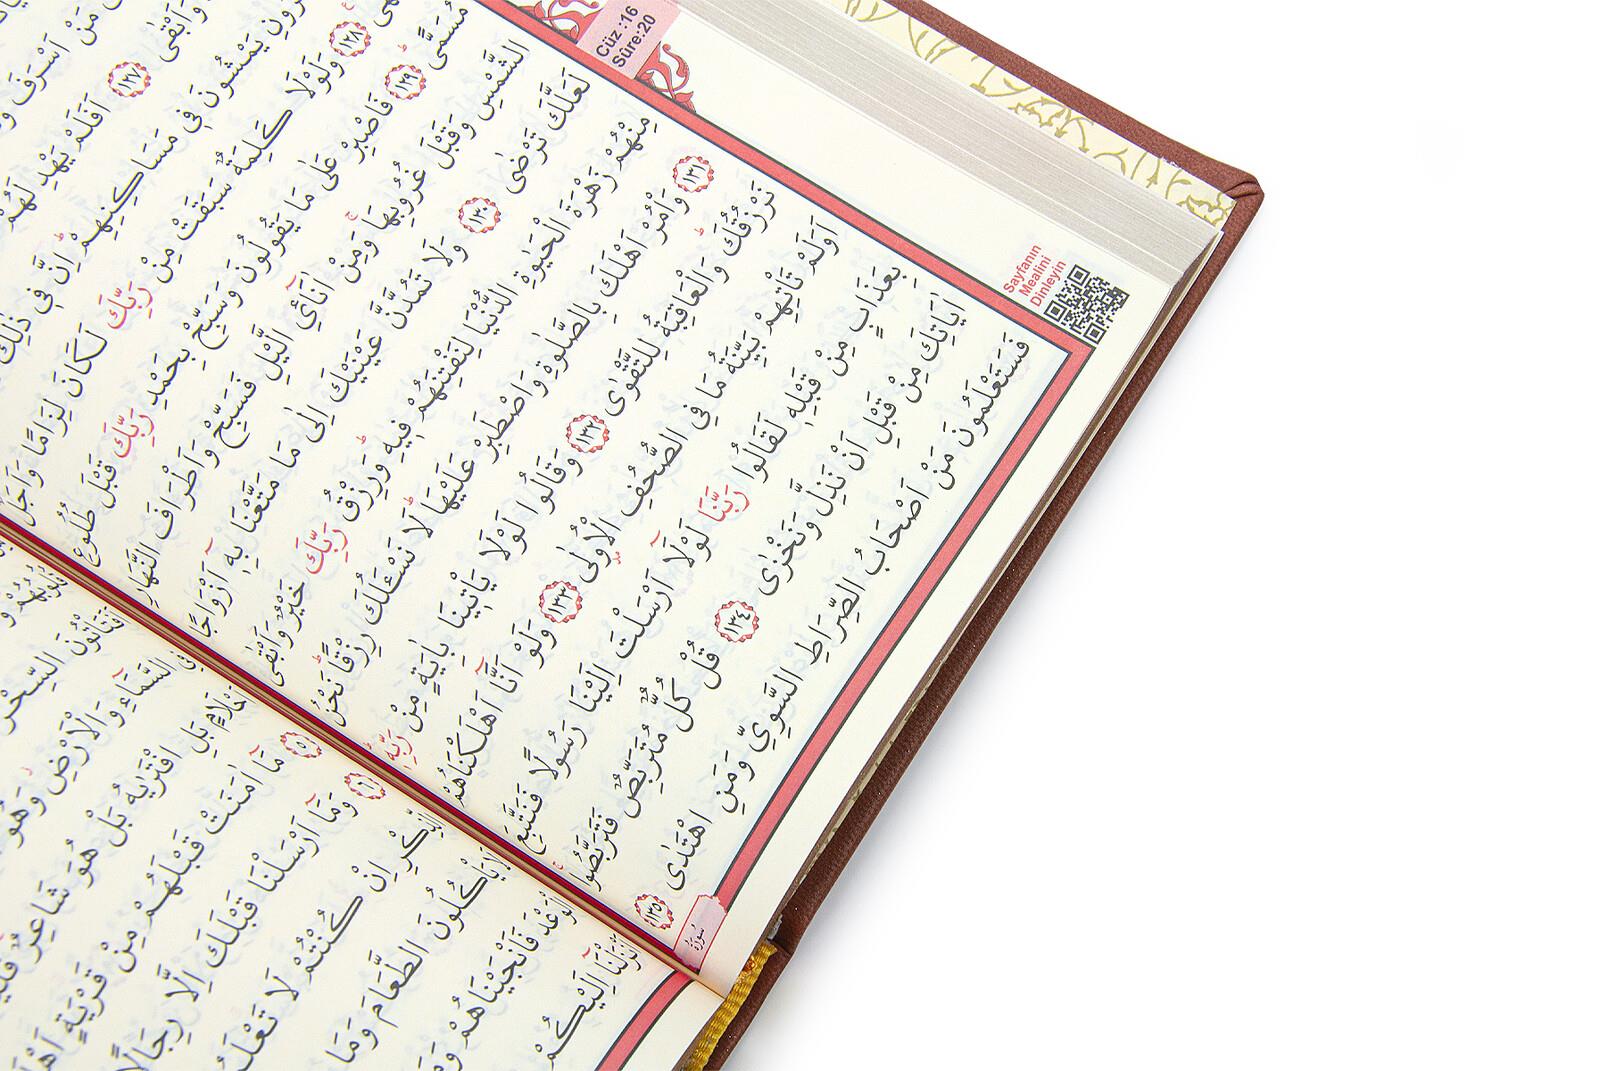 Cüz :16
Sûre:20
مَنْ اَسْرَفَ
وَاَبْقٰى ﴿١٢٧﴾ اَفَلَمْ يَهْدِ لَهُمْ
يَمْشُونَ فٖى مَسَاكِنِهِمْ اِنَّ فٖى ذٰلِكَ
﴿١٢٨﴾ وَلَوْلَا كَلِمَةٌ سَبَقَتْ مِنْ رَبِّكَ لَكَانَ لِزَامًا وَاَجَلٌ
مُسَمًّى ﴿١٢٩﴾ فَاصْبِرْ عَلٰى مَا يَقُولُونَ وَسَبِّحْ بِحَمْدِ رَبِّكَ قَبْلَ طُلُوعِ
الشَّمْسِ وَقَبْلَ غُرُوبِهَا وَمِنْ اٰنَآئِ الَّيْلِ فَسَبِّحْ وَاَطْرَافَ النَّهَارِ
لَعَلَّكَ تَرْضٰى ﴿١٣٠﴾ وَلَا تَمُدَّنَّ عَيْنَيْكَ اِلٰى مَا مَتَّعْنَا بِهٖٓ اَزْوَاجًا
مِنْهُمْ زَهْرَةَ الْحَيٰوةِ الدُّنْيَا لِنَفْتِنَهُمْ فٖيهِ وَرِزْقُ رَبِّكَ خَيْرٌ وَاَبْقٰى
﴿١٣١﴾ وَأْمُرْ اَهْلَكَ بِالصَّلٰوةِ وَاصْطَبِرْ عَلَيْهَا لَا نَسْـَٔلُكَ رِزْقًا نَحْنُ
نَرْزُقُكَ وَالْعَاقِبَةُ لِلتَّقْوٰى ﴿١٣٢﴾ وَقَالُوا لَوْلَا يَأْتٖينَا بِاٰيَةٍ مِنْ رَبِّهٖ
اَوَلَمْ تَأْتِهِمْ بَيِّنَةُ مَا فِى الصُّحُفِ الْاُولٰى ﴿١٣٣﴾ وَلَوْ اَنَّٓا اَهْلَكْنَاهُمْ
بِعَذَابٍ مِنْ قَبْلِهٖ لَقَالُوا رَبَّنَا لَوْلَٓا اَرْسَلْتَ اِلَيْنَا رَسُولًا فَنَتَّبِعَ
اٰيَاتِكَ مِنْ قَبْلِ اَنْ نَذِلَّ وَنَخْزٰى ﴿١٣٤﴾ قُلْ كُلٌّ مُتَرَبِّصٌ فَتَرَبَّصُوا
فَسَتَعْلَمُونَ مَنْ اَصْحَابُ الصِّرَاطِ السَّوِيِّ وَمَنِ اهْتَدٰى ﴿١٣٥﴾
Sayfanın
Mealini
Dinleyin
سُورَةُ
اَفَتَأْتُونَ السِّحْرَ
السَّمَآءِ وَالْاَرْضِ وَهُوَ
اَحْلَامٍ بَلِ افْتَرٰيهُ بَلْ هُوَ شَاعِرٌ
﴿٥﴾ مَٓا اٰمَنَتْ قَبْلَهُمْ مِنْ قَرْيَةٍ
﴿٦﴾ وَمَٓا اَرْسَلْنَا قَبْلَكَ اِلَّا رِجَالًا
الذِّكْرِ اِنْ كُنْتُمْ لَا
لَا يَأْكُلُونَ الطَّعَامَ وَمَا
الْوَعْدَ فَاَنْجَيْنَاهُمْ
اَنْزَلْنَٓا اِلَيْكُمْ